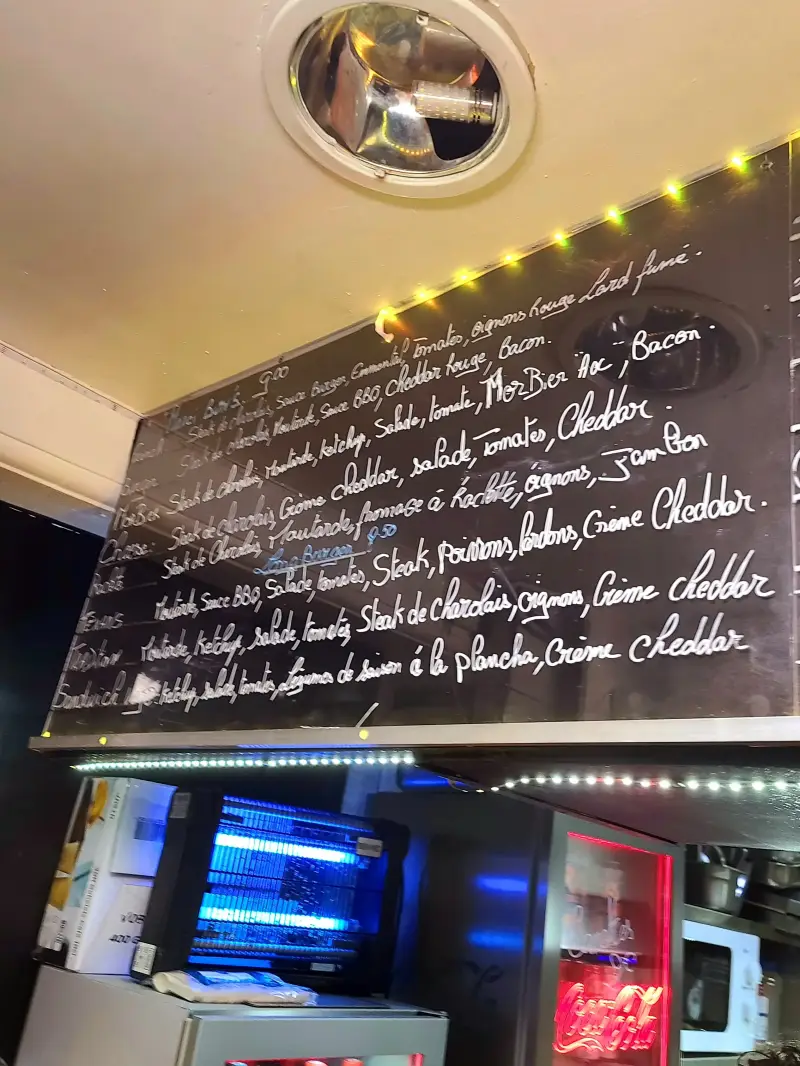 9.00
Steak de charolais, Sauce Burger, Emmental, tomates, oignons Rouge Lard fumé.
Steak de charolais, Moutarde, Sauce BBQ, Cheddar Rouge, Bacon.
MorBier Steak de charolais, Moutarde, ketchup, Salade, tomate, MorBier Aoc, Bacon.
Steak de charolais, Crème cheddar, salade, Tomates, Cheddar.
Steak de Charolais, Moutarde, fromage à Raclette, oignons, Jambon
Long Burger 9.50
Moutarde, Sauce BBQ, Salade, tomates, Steak, poivrons, lardons, Crème Cheddar.
Moutarde, Ketchup, salade, tomates, Steak de Charolais, oignons, Crème cheddar
Sandwich Ketchup, salade, tomates, Légumes de saison à la plancha, Crème cheddar
400G
Coca-Cola